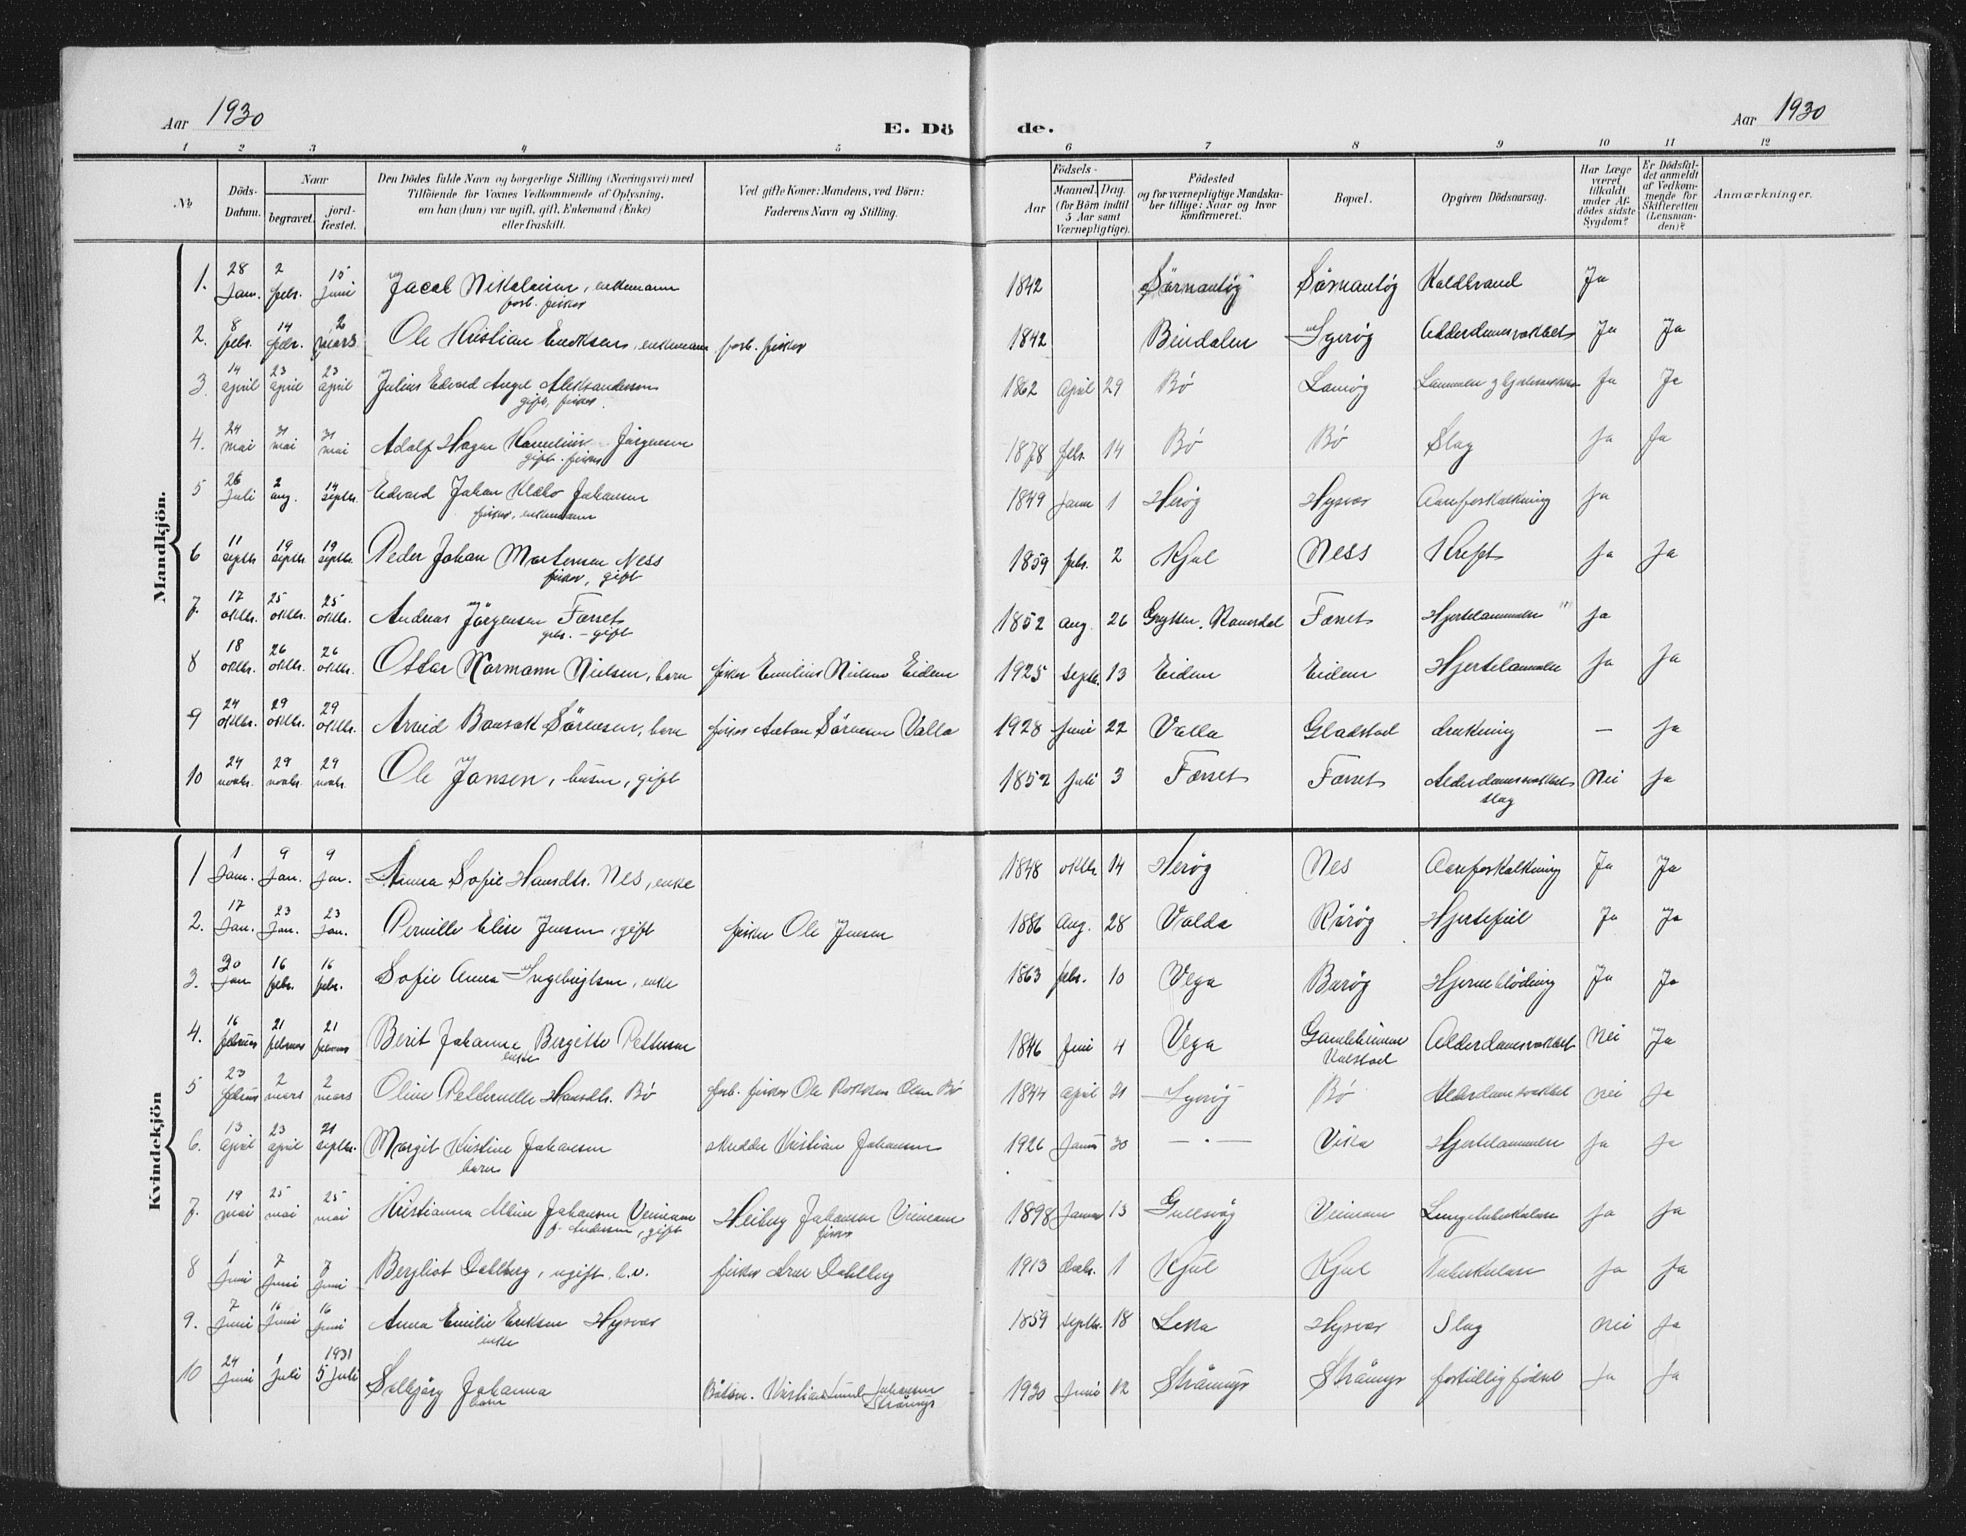 Aar 1930
E. Dö de.
Aar 1930
1 2 3 4 5 6 7 8 9 10 11 12
No Döds-Datum. Naar begravet. jord-fæstet. Den Dödes fulde Navn og borgerlige Stilling (Næringsvei) med Tilföiende for Voxnes Vedkommende af Oplysning, om han (hun) var ugift, gift, Enkemand (Enke) eller fraskilt. Ved gifte Koner: Mandens, ved Börn: Faderens Navn og Stilling. Födsels- Aar Maaned. Dag. (for Börn indtil 5 Aar samt Værnepligtige). Födested og for værnepligtige Mandskaber tillige: Naar og hvor Konfirmeret. Bopæl. Opgiven Dödsaarsag. Har Læge været tilkaldt under Afdödes sidste Sygdom? Er Dödsfaldet anmeldt af Vedkommende for Skifteretten (Lensmanden)? Anmærkninger.
Mandkjön.
1. 28 Jan. 2 febr. 15 juni Jacob Nikolaisen, enkemann forh. fisker 1842 Sørnantøy Sørnantøy Koldbrand Ja
2. 8 febr. 14 febr. 2 mars Ole Kristian Eriksen, enkemann forh. fisker 1842 Bindalen Igerøy Alderdomssvakhet Ja Ja
3. 14 april 23 april 23 april Julius Edvard Angel Aleksandersen gift, fisker. 1862 april 29 Bø Lanøy Ja Ja
4. 24 mai 31 mai 31 mai Adolf Hagen Jörgensen gift. fisker 1878 febr. 14 Bø Bø Slag Ja Ja
5 26 Juli 2 aug. 14 septbr. Edvard Johan Klæbo Johansen fisker, enkemann 1849 Janu 1 Herøy Hysvær Aareforkalkning Ja
6 11 septbr 19 septbr. 19 septbr. Peder Johan Mortensen Ness fisker, gift 1859 febr. 2 Kjul Ness Kreft Ja Ja
7. 17 oktbr. 25 oktbr. 25 oktbr. Andreas Jörgensen Færset gift 1852 aug. 26 Grytten, Romsdal Færset Hjertelammelse Ja
8 18 oktbr. 26 oktbr. 26 oktbr. Ottar Normann Nielsen, barn fisker Emilius Nielsen Eidem 1925 septbr. 13 Eidem Eidem Hjertelammelse Ja Ja
9 24 oktbr. 29 oktbr. 29 oktbr. Arvid Bonsak Sörensen, barn fisker Anton Sörensen Valla 1928 Juni 22 Valla Gladstad drukning — Ja
10 24 novbr. 29 novbr. 29 novbr. Ole Jansen, husm, gift 1852 Juli 3 Færset Færset Alderdomssvakhet slag Nei Ja
Kvindekjön
1 1 Jan. 9 Jan. 9 Jan. Anna Sofie Hansdtr. Nes, enke 1848 oktbr 14 Herøy Nes Aareforkalkning Ja Ja
2. 17 Jan. 23 Jan. 23 Jan. Pernille Elise Jensen, gift fisker Ole Jensen 1886 Aug. 28 Valda Rörøy Hjertefeil Ja Ja
3. 30 Jan 16 febr. 16 febr. Sofie Anna Ingebrigtsen, enke 1863 febr. 10 Vega Burøy Hjerneblödning Ja Ja
4. 16 februar 21 februar 21 februar Berit Johanne Bergitte Pettersen enke 1846 Juni 4 Vega Gamlehjemmet Valstad Alderdomssvakhet Nei Ja
5 23 februar 2 mars 2 mars Oline Petternelle Hansdtr. Bö forh. fisker Ole Olsen Bö 1844 april 21 Igerøy Bö Alderdomssvakhet Nei Ja
6. 13 april 23 april 21 septbr. Margit Kristine Johansen barn skredder Kristian Johansen 1926 Januar 30 — . — Vika Hjertelammelse Ja Ja
7. 19 mai 25 mai 25 mai Kristianna Johansen Veinem f. Andersen, gift Heiberg Johansen Veinem fisker 1898 Januar 13 Gullsvåg Veinem Lungetuberkulose Ja Ja
8 1 Juni 7 Juni 7 Juni Bergliot Dahlberg, ugift. h.v. fisker Arne Dahlberg 1913 1 Kjul Kjul Tuberkulose Ja Ja
9. 7 Juni 16 Juni 16 Juni Anna Emilie Eriksen Hysvær enke 1859 septbr. 18 Leka Hysvær Slag Nei Ja
10 24 Juni 1 Juli 1931 5 Juli Solbjörg Johanna barn Båtsm. Kristian Johansen Strömøy 1930 Juni 12 Strömøy Strömøy fortidlig födsel Ja Ja